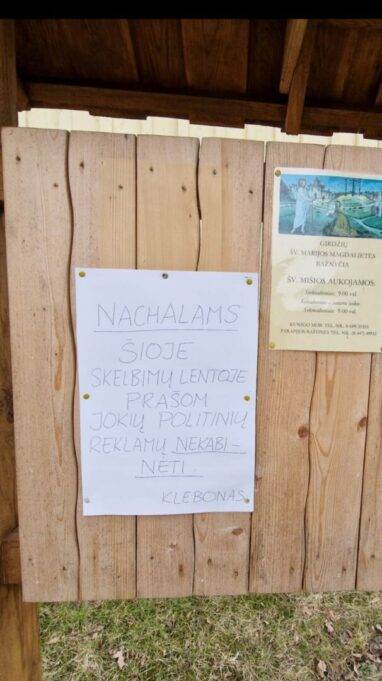 NACHALAMS
ŠIOJE
SKELBIMŲ LENTOJE
PRAŠOM
JOKIŲ POLITINIŲ
REKLAMŲ NEKABI-
NĖTI.
KLEBONAS
GIRDŽIŲ
ŠV. MARIJOS MAGDALIETĖS
BAŽNYČIA
ŠV. MIŠIOS AUKOJAMOS: